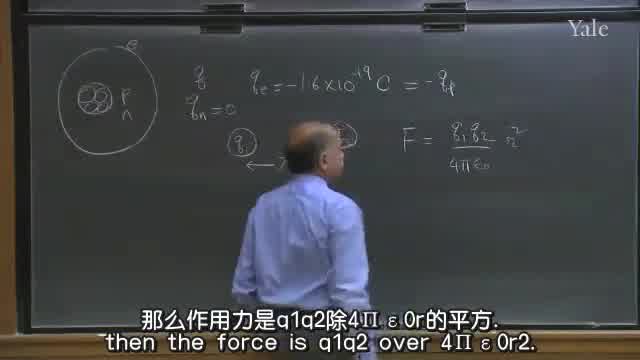 Yale
e
P
n
q
q_e = -1.6 × 10^-19 C = -q_p
q_n = 0
q
F = q₁q₂ / 4πε₀ r²
那么作用力是q1q2除4Π ε0r的平方.
then the force is q1q2 over 4Π ε0r2.